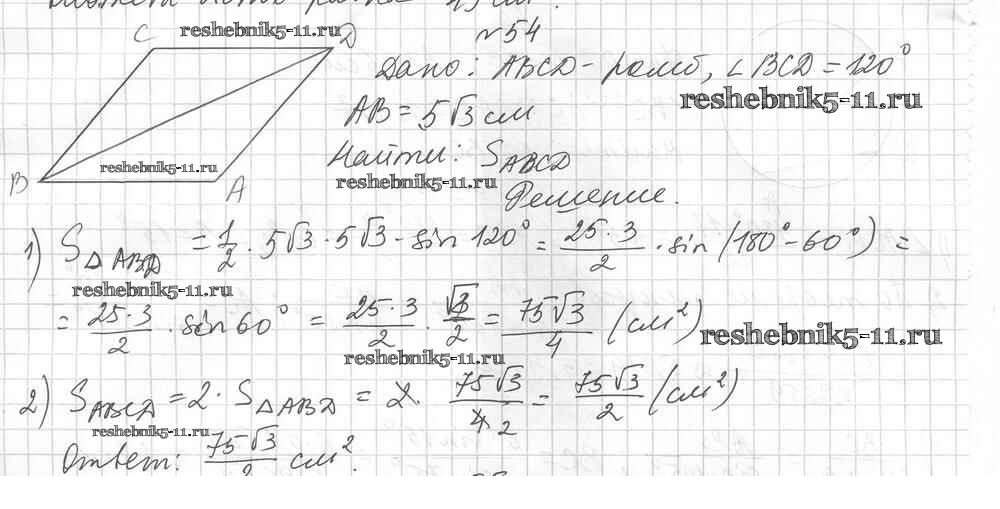 C reshebnik5-11.ru D
№54
Дано: ABCD - ромб, ∠BCD = 120°
reshebnik5-11.ru
AB = 5√3 см
reshebnik5-11.ru
Найти: S_ABCD
B A
reshebnik5-11.ru
Решение.
1) S_△ABD = 1/2 · 5√3 · 5√3 · sin 120° = 25·3/2 · sin (180° - 60°) =
reshebnik5-11.ru
= 25·3/2 · sin 60° = 25·3/2 · √3/2 = 75√3/4 (см²)
reshebnik5-11.ru
reshebnik5-11.ru
2) S_ABCD = 2 · S_△ABD = 2 · 75√3/4 2 = 75√3/2 (см²)
reshebnik5-11.ru
Ответ: 75√3/2 см².